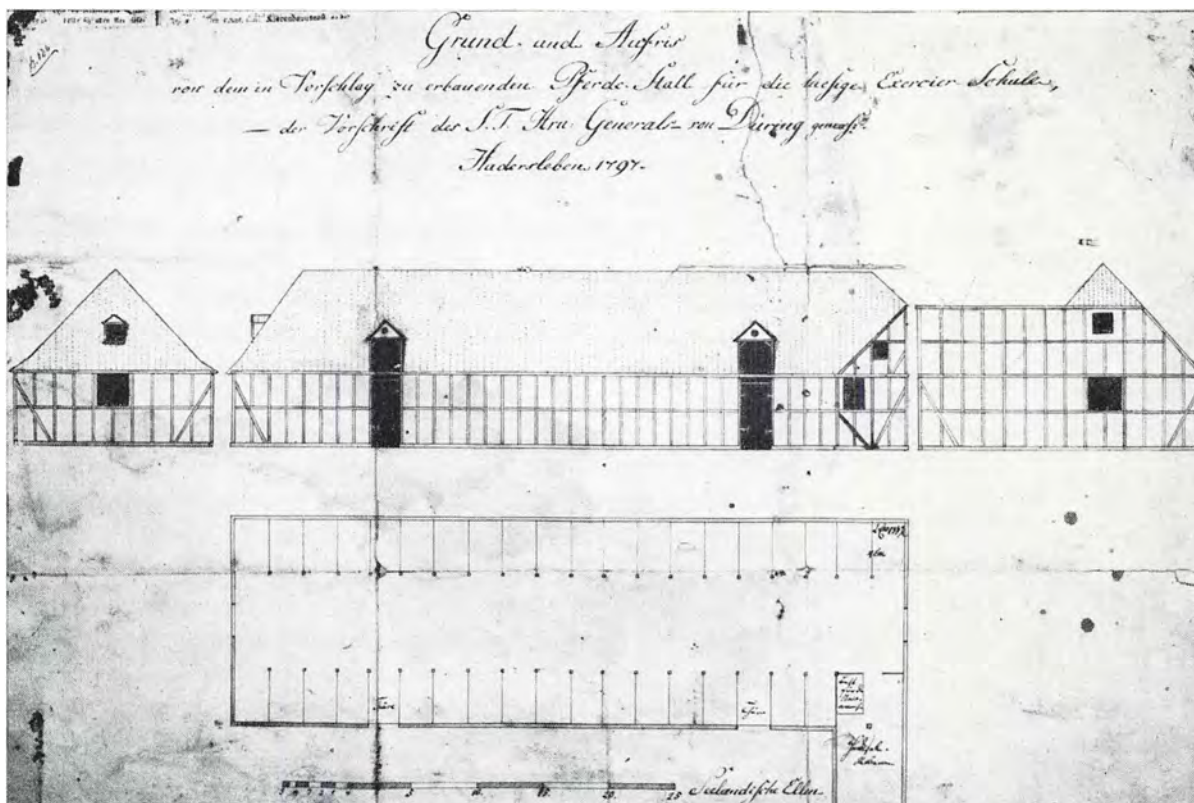 Grund- und Aufris
von dem in Vorschlag zu erbauenden Pferde-Stall für die hiesige Exercier Schule,
— der Vorschrift des S.T. Hrn. Generals von Düring gemaess.
Hadersleben 1797.
Thüre
Thüre
5 10 15 20 25 Seelandische Ellen